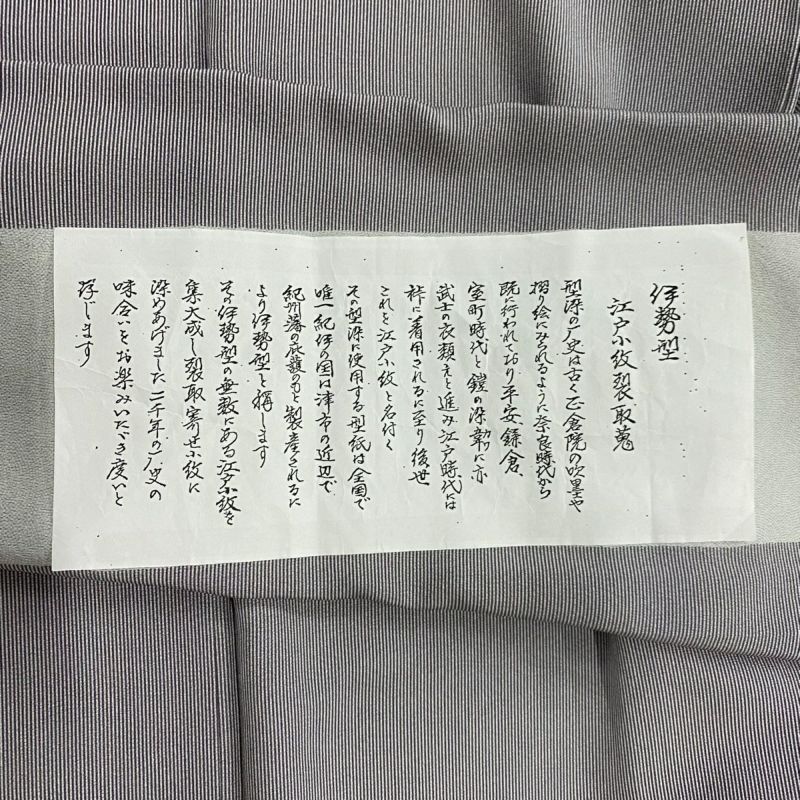 伊勢型
江戸小紋裂取蒐
型染の歴史は古く正倉院の吹墨や
摺り絵にみられるように奈良時代から
既に行われており平安、鎌倉、
室町時代と鎧の染韋に亦
武士の衣類えと進み江戸時代には
裃に着用されるに至り後世
これを江戸小紋と名付く
その型染に使用する型紙は全国で
唯一紀伊の国は津市の近辺で
紀州藩の庇護のもと製産されるに
より伊勢型と稱します
その伊勢型の無数にある江戸小紋を
集大成し裂取寄せ小紋に
染めあげました 二千年の歴史の
味合いをお楽みいたゞき度いと
存じます